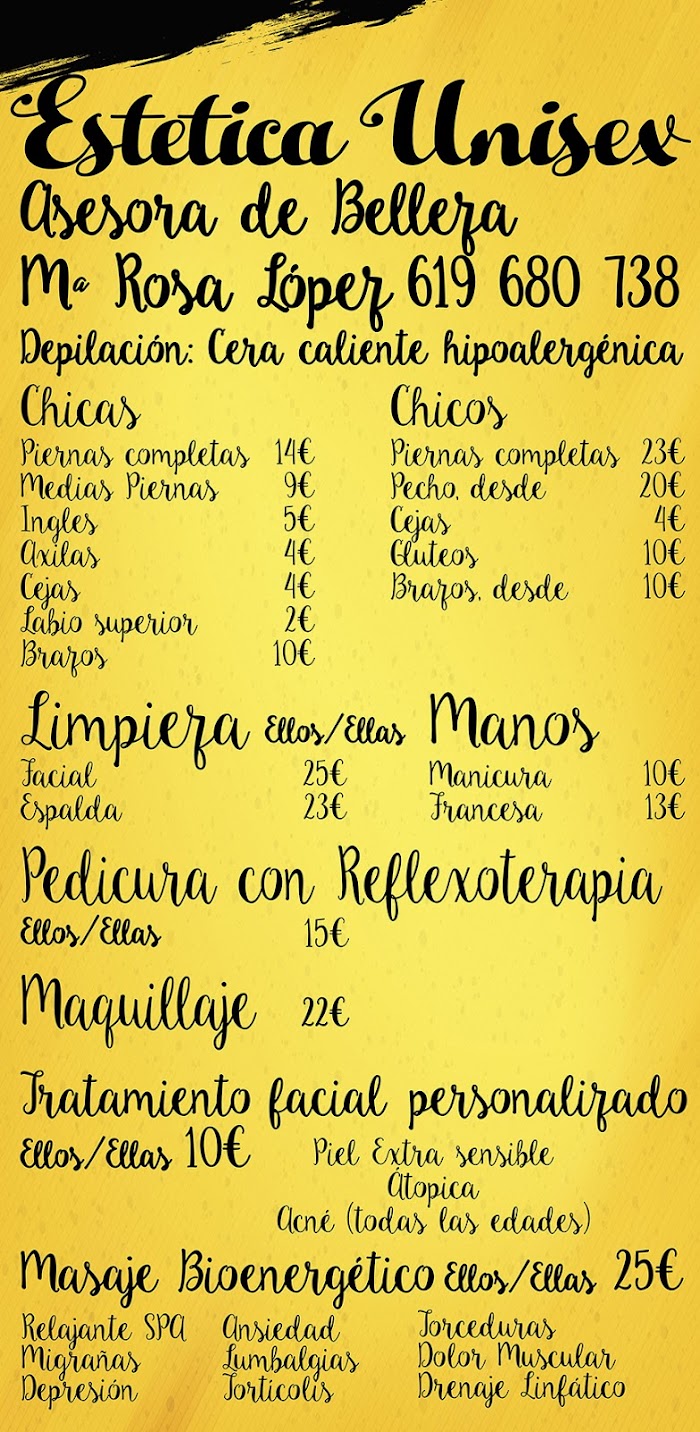 Estetica Unisex
Asesora de Belleza
Mª Rosa López 619 680 738
Depilación: Cera caliente hipoalergénica
Chicas
Piernas completas 14€
Medias Piernas 9€
Ingles 5€
Axilas 4€
Cejas 4€
Labio superior 2€
Brazos 10€
Chicos
Piernas completas 23€
Pecho, desde 20€
Cejas 4€
Gluteos 10€
Brazos, desde 10€
Limpieza Ellos/Ellas
Facial 25€
Espalda 23€
Manos
Manicura 10€
Francesa 13€
Pedicura con Reflexoterapia
Ellos/Ellas 15€
Maquillaje 22€
Tratamiento facial personalizado
Ellos/Ellas 10€ Piel Extra sensible
Átopica
Acné (todas las edades)
Masaje Bioenergético Ellos/Ellas 25€
Relajante SPA Ansiedad Torceduras
Migrañas Lumbalgias Dolor Muscular
Depresión Torticolis Drenaje Linfático